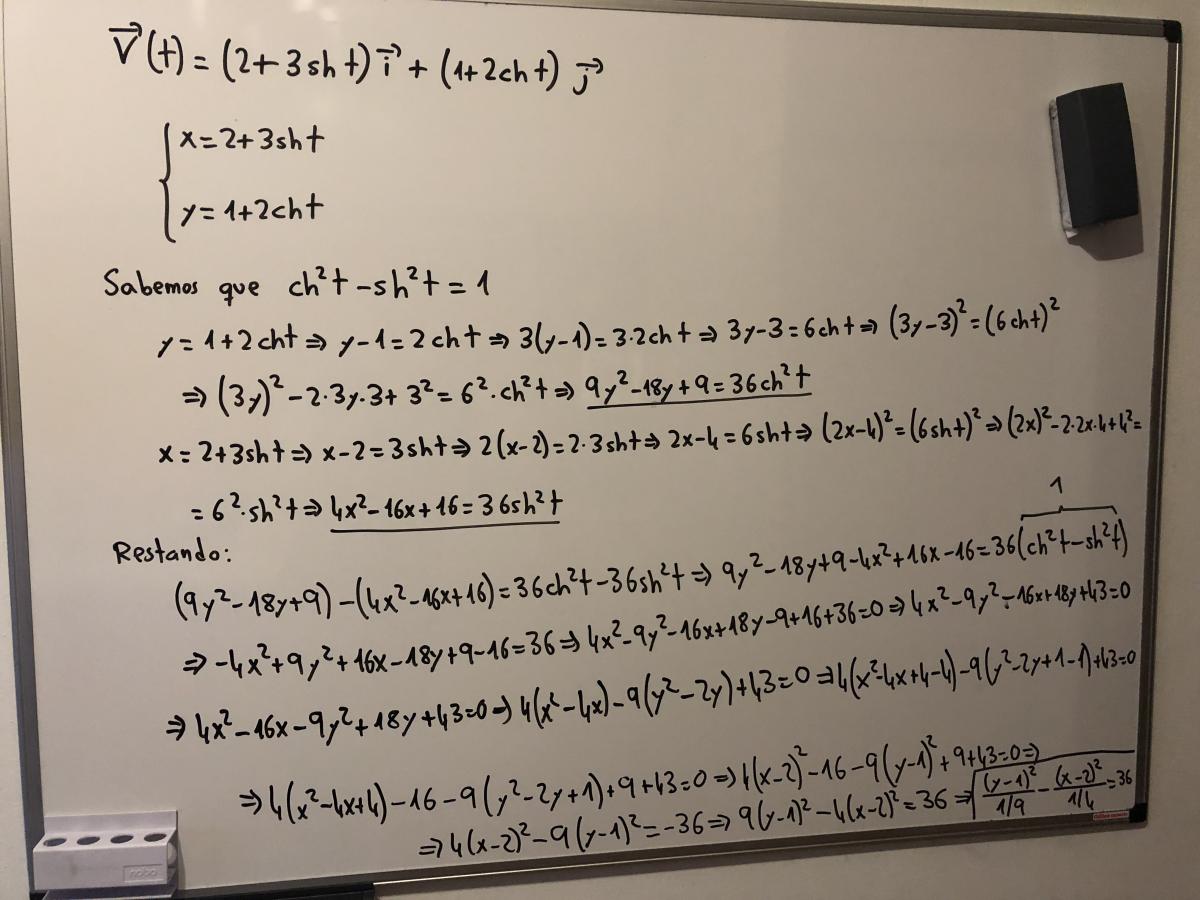 V⃗(t) = (2+3sh t) i⃗ + (1+2ch t) j⃗
{ x=2+3sh t
y=1+2ch t
Sabemos que ch²t - sh²t = 1
y = 1+2cht ⇒ y-1 = 2cht ⇒ 3(y-1) = 3·2cht ⇒ 3y-3 = 6cht ⇒ (3y-3)² = (6cht)²
⇒ (3y)² - 2·3y·3 + 3² = 6²·ch²t ⇒ 9y²-18y+9 = 36ch²t
x = 2+3sht ⇒ x-2 = 3sht ⇒ 2(x-2) = 2·3sht ⇒ 2x-4 = 6sht ⇒ (2x-4)² = (6sht)² ⇒ (2x)²-2·2x·4+4² =
= 6²·sh²t ⇒ 4x²-16x+16 = 36sh²t
1
Restando:
(9y²-18y+9) - (4x²-16x+16) = 36ch²t - 36sh²t ⇒ 9y²-18y+9-4x²+16x-16 = 36(ch²t-sh²t)
⇒ -4x²+9y²+16x-18y+9-16 = 36 ⇒ 4x²-9y²-16x+18y-9+16+36=0 ⇒ 4x²-9y²-16x+18y+43=0
⇒ 4x²-16x-9y²+18y+43=0 ⇒ 4(x²-4x)-9(y²-2y)+43=0 ⇒ 4(x²-4x+4-4)-9(y²-2y+1-1)+43=0
⇒ 4(x²-4x+4)-16-9(y²-2y+1)+9+43=0 ⇒ 4(x-2)²-16-9(y-1)²+9+43=0 ⇒
⇒ 4(x-2)²-9(y-1)² = -36 ⇒ 9(y-1)²-4(x-2)² = 36 ⇒ (y-1)²/1/9 - (x-2)²/1/4 = 36
nobo